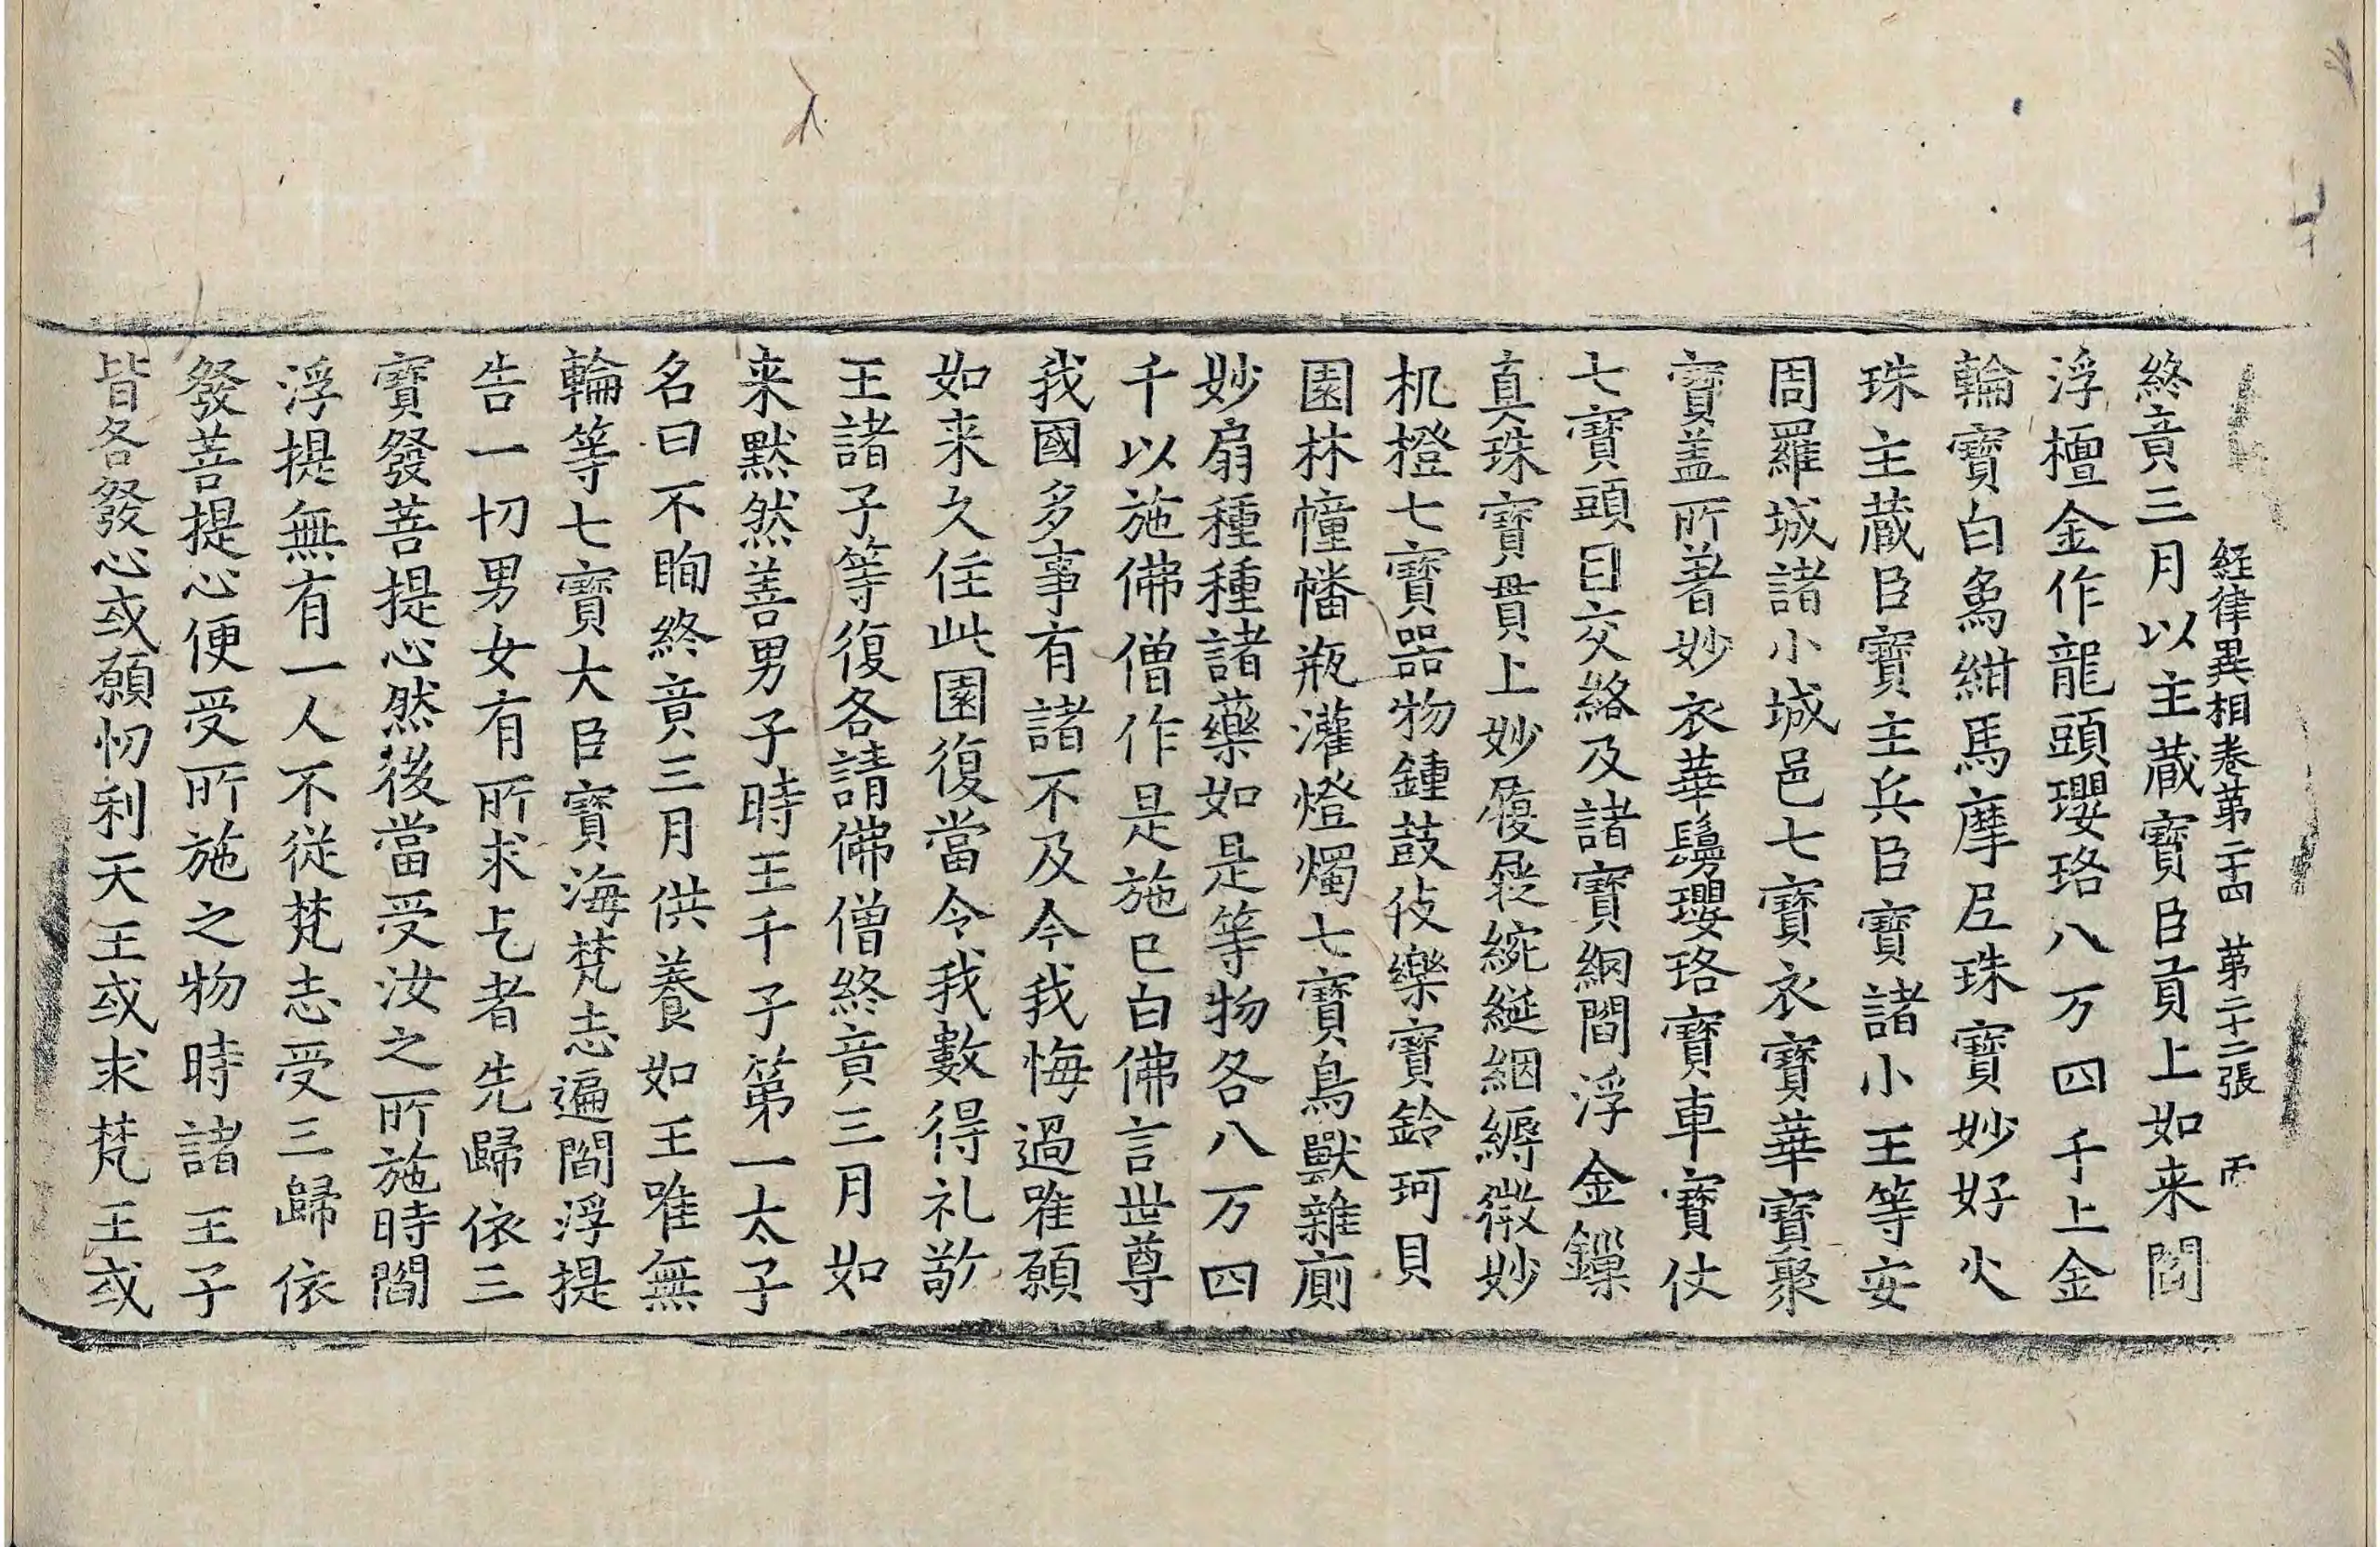 経律異相卷第二十四　第二十二張　丙
終竟三月以主蔵寶臣貢上如来閻
浮檀金作龍頭瓔珞八万四千上金
輪寶白象紺馬摩尼珠寶妙好火
珠主蔵臣寶主兵臣寶諸小王等安
周羅城諸小城邑七寶衣寶華寶聚
寶盖所著妙衣華鬘瓔珞寶車寶仗
七寶頭目交絡及諸寶網閻浮金鏁
真珠寶貫上妙履屣綩綖絪縟微妙
机橙七寶器物鍾鼓伎樂寶鈴珂貝
園林幢幡瓶灌燈燭七寶鳥獸雜廁
妙扇種種諸藥如是等物各八万四
千以施佛僧作是施已白佛言世尊
我國多事有諸不及今我悔過唯願
如来久住此園復當令我數得礼敬
王諸子等復各請佛僧終竟三月如
来黙然善男子時王千子第一太子
名曰不眴終竟三月供養如王唯無
輪等七寶大臣寶海梵志遍閻浮提
告一切男女有所求乞者先歸依三
寶發菩提心然後當受汝之所施時閻
浮提無有一人不從梵志受三歸依
發菩提心便受所施之物時諸王子
皆各發心或願忉利天王或求梵王或